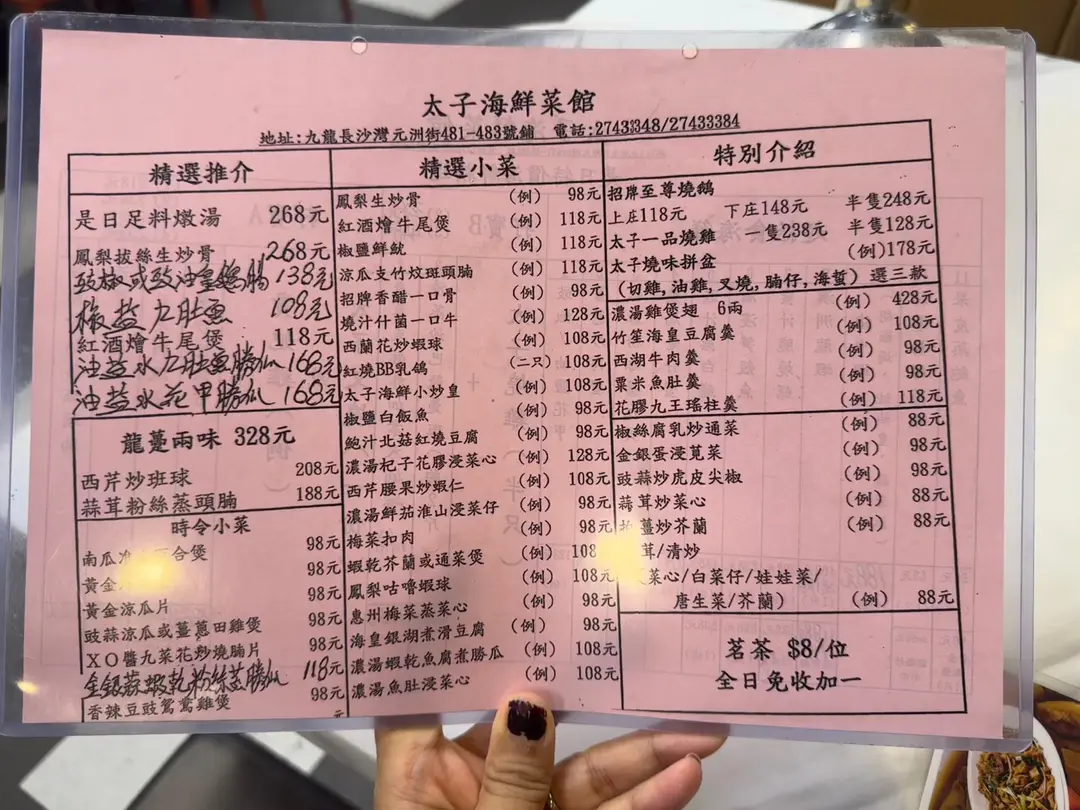 太子海鮮菜館
地址:九龍長沙灣元洲街481-483號鋪 電話:27433348/27433384
精選推介
是日足料燉湯 268元
鳳梨拔絲生炒骨 268元
豉椒或豉油皇鵝腸 138元
椒盐九肚魚 108元
紅酒燴牛尾煲 118元
油盐水九肚魚勝瓜 168元
油盐水花甲勝瓜 168元
龍躉兩味 328元
西芹炒班球 208元
蒜茸粉絲蒸頭腩 188元
時令小菜
南瓜 百合煲 98元
黃金 98元
黃金涼瓜片 98元
豉蒜涼瓜或薑蔥田雞煲 98元
XO醬九菜花炒燒腩片 98元
金銀蒜蝦乾粉絲蒸勝瓜 118元
香辣豆豉鴛鴦雞煲 98元
元
精選小菜
鳳梨生炒骨 (例) 98元
紅酒燴牛尾煲 (例) 118元
椒鹽鮮魷 (例) 118元
涼瓜支竹炆斑頭腩 (例) 118元
招牌香醋一口骨 (例) 98元
燒汁什菌一口牛 (例) 128元
西蘭花炒蝦球 (例) 108元
紅燒BB乳鴿 (二只) 108元
太子海鮮小炒皇 (例) 108元
椒鹽白飯魚 (例) 98元
鮑汁北菇紅燒豆腐 (例) 98元
濃湯杞子花膠浸菜心 (例) 128元
西芹腰果炒蝦仁 (例) 108元
濃湯鮮茄淮山浸菜仔 (例) 98元
梅菜扣肉 (例) 98元
蝦乾芥蘭或通菜煲 (例) 108
鳳梨咕嚕蝦球 (例) 108元
惠州梅菜蒸菜心 (例) 98元
海皇銀湖煮滑豆腐 (例) 98元
濃湯蝦乾魚腐煮勝瓜 (例) 108元
濃湯魚肚浸菜心 (例) 108元
特別介紹
招牌至尊燒鵝
上庄118元 下庄148元 半隻248元
太子一品燒雞 一隻238元 半隻128元
太子燒味拼盆 (例)178元
(切雞,油雞,叉燒,腩仔,海蜇) 選三款
濃湯雞煲翅 6兩 (例) 428元
竹笙海皇豆腐羹 (例) 108元
西湖牛肉羹 (例) 98元
粟米魚肚羹 (例) 98元
花膠九王瑤柱羹 (例) 118元
椒絲腐乳炒通菜 (例) 88元
金銀蛋浸莧菜 (例) 98元
豉蒜炒虎皮尖椒 (例) 98元
蒜茸炒菜心 (例) 88元
薑炒芥蘭 (例) 88元
茸/清炒
菜心/白菜仔/娃娃菜/
唐生菜/芥蘭) (例) 88元
茗茶 $8/位
全日免收加一